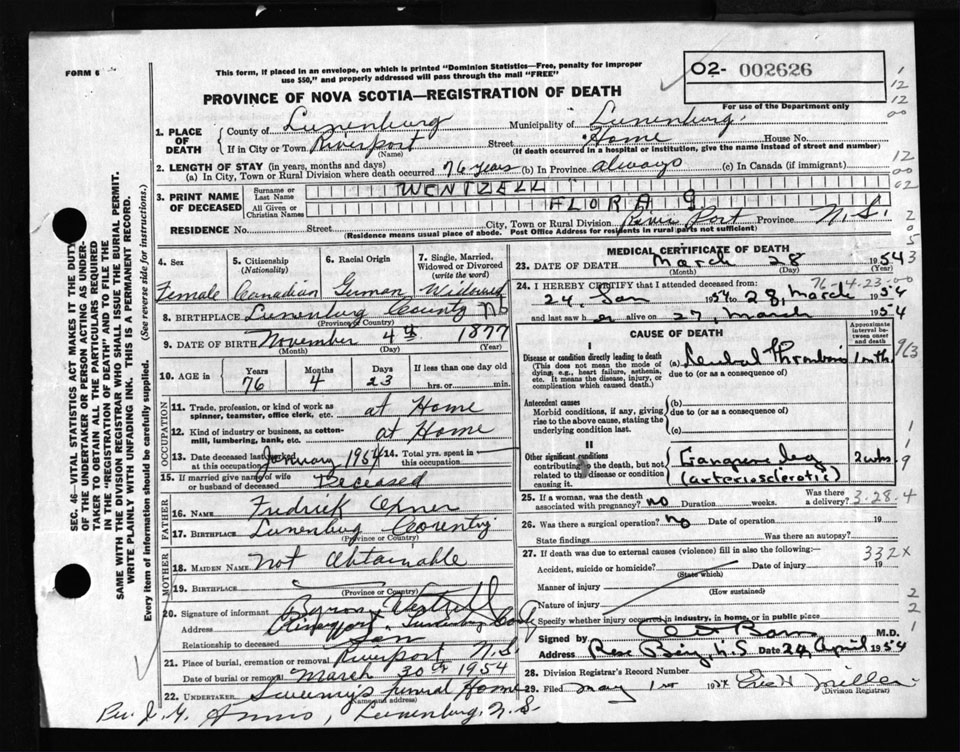 FORM 6
This form, if placed in an envelope, on which is printed "Dominion Statistics—Free, penalty for improper
use $50," and properly addressed will pass through the mail "FREE"
O2- 002626
For use of the Department only
PROVINCE OF NOVA SCOTIA—REGISTRATION OF DEATH
1. PLACE OF DEATH
County of Lunenburg Municipality of Lunenburg.
If in City or Town Riverport Street Home House No.
(Name) (If death occurred in a hospital or institution, give the name instead of street and number)
2. LENGTH OF STAY (in years, months and days)
(a) In City, Town or Rural Division where death occurred 76 years (b) In Province always (c) In Canada (if immigrant)
3. PRINT NAME OF DECEASED
Surname or Last Name WENTZELL
All Given or Christian Names FLORA
RESIDENCE No. Street City, Town or Rural Division River Port Province N.S.
(Residence means usual place of abode. Post Office Address for residents in rural parts not sufficient)
4. Sex 5. Citizenship (Nationality) 6. Racial Origin 7. Single, Married, Widowed or Divorced (write the word)
Female Canadian German Widowed
8. BIRTHPLACE Lunenburg County
(Province or Country)
9. DATE OF BIRTH November 4th 1877
(Month) (Day) (Year)
10. AGE in Years Months Days If less than one day old
76 4 23 hrs. or min.
OCCUPATION
11. Trade, profession, or kind of work as spinner, teamster, office clerk, etc. at Home
12. Kind of industry or business, as cotton-mill, lumbering, bank, etc. at Home
13. Date deceased last worked at this occupation January 1954 14. Total yrs. spent in this occupation
15. If married give name of wife or husband of deceased Deceased
FATHER
16. Name Fredrick
17. Birthplace Lunenburg County
(Province or Country)
MOTHER
18. MAIDEN NAME Not Obtainable
19. BIRTHPLACE
(Province or Country)
20. Signature of informant Byron Wentzell
Address Riverport, Lunenburg
Relationship to deceased Son
21. Place of burial, cremation or removal Riverport N.S.
Date of burial or removal March 30th 1954
22. UNDERTAKER Sweeny's Funeral Home
(Name and address)
Per. Lunenburg, N.S.
MEDICAL CERTIFICATE OF DEATH
23. DATE OF DEATH March 28 1954
(Month) (Day) (Year)
76-4-23-00
24. I HEREBY CERTIFY that I attended deceased from:
24, Jan 1954 to 28, March 1954
and last saw her alive on 27, March 1954
CAUSE OF DEATH
Approximate interval between onset and death
I
Disease or condition directly leading to death
(This does not mean the mode of dying, e.g., heart failure, asthenia, etc. It means the disease, injury, or complication which caused death.)
(a) Cerebral Thrombosis 1 mth
due to (or as a consequence of)
Antecedent causes
Morbid conditions, if any, giving rise to the above cause, stating the underlying condition last.
(b)
due to (or as a consequence of)
(c)
II
Other significant conditions contributing to the death, but not related to the disease or condition causing it.
Gangrene leg 2 wks
(arteriosclerotic)
25. If a woman, was the death associated with pregnancy? no Duration weeks. Was there a delivery? 3-28-4
26. Was there a surgical operation? no Date of operation 19
State findings Was there an autopsy?
27. If death was due to external causes (violence) fill in also the following:— 332X
Accident, suicide or homicide? Date of injury 19
(State which)
Manner of injury
(How sustained)
Nature of injury
Specify whether injury occurred in industry, in home, or in public place
Signed by M.D.
Address Rose Bay, N.S Date 24 April 1954
28. Division Registrar's Record Number
29. Filed May 1st 1954 Miller
(Division Registrar)
SEC. 46—VITAL STATISTICS ACT MAKES IT THE DUTY
OF THE UNDERTAKER OR PERSON ACTING AS UNDER-
TAKER TO OBTAIN ALL THE PARTICULARS REQUIRED
IN THE "REGISTRATION OF DEATH" AND TO FILE THE
SAME WITH THE DIVISION REGISTRAR WHO SHALL ISSUE THE BURIAL PERMIT.
WRITE PLAINLY WITH UNFADING INK. THIS IS A PERMANENT RECORD.
Every item of information should be carefully supplied. (See reverse side for instructions.)